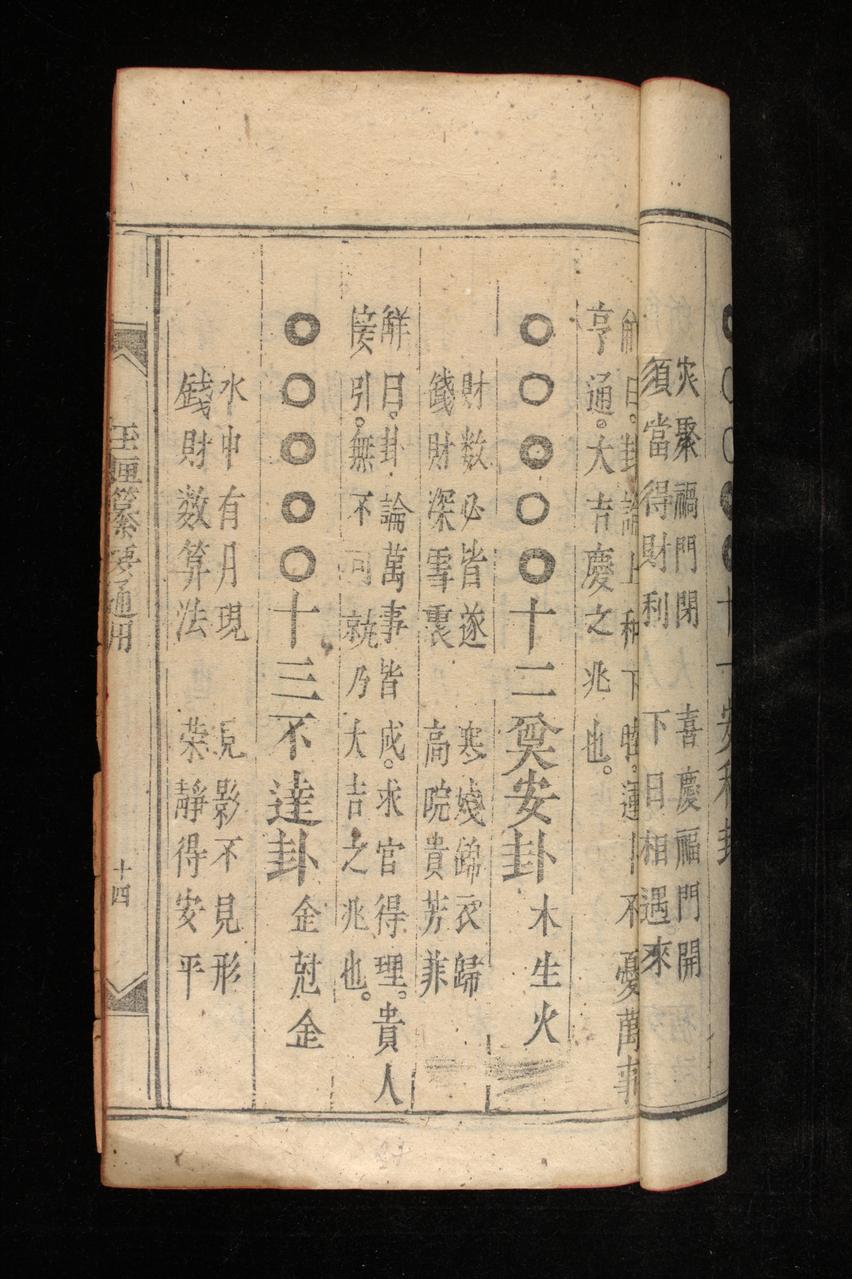 十一安和卦
災聚禍門閉 喜慶福門開
須當得財利 下日相遇來
解曰。卦論上和下睦。運不憂萬事
亨通。大吉慶之兆也。
十二奠安卦 木生火
財数必皆遂 寒錦衣歸
錢財深雪裏 高院貴芳菲
解曰。卦論萬事皆成。求官得理。貴人
接引。無不可就乃大吉之兆也。
十三不達卦 金尅金
水中有月現 見影不見形
錢財数算法 榮靜得安平
玉匣纂要通用
十四